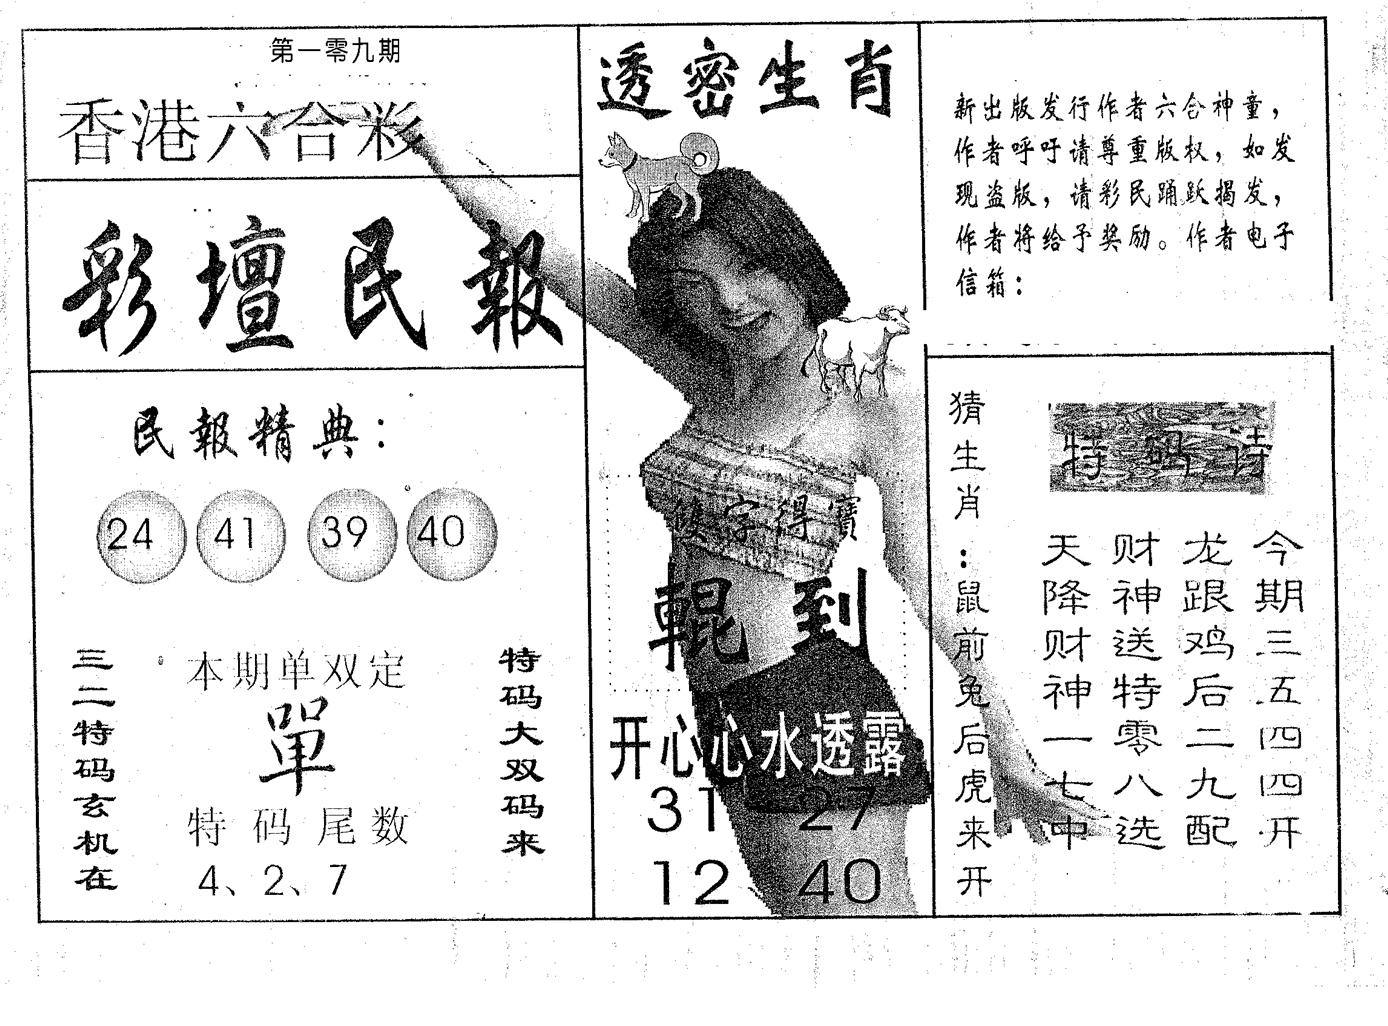 第一零九期
香港六合彩
彩壇民報
民報精典：
24 41 39 40
三二特码玄机在
本期单双定
單
特码尾数
4、2、7
特码大双码来
透密生肖
字得寶
輥到
开心心水透露
31 27
12 40
新出版发行作者六合神童，
作者呼吁请尊重版权，如发
现盗版，请彩民踊跃揭发，
作者将给予奖励。作者电子
信箱：
猜生肖：鼠前兔后虎来开
特码诗
今期三五四四开
龙跟鸡后二九配
财神送特零八选
天降财神一七中